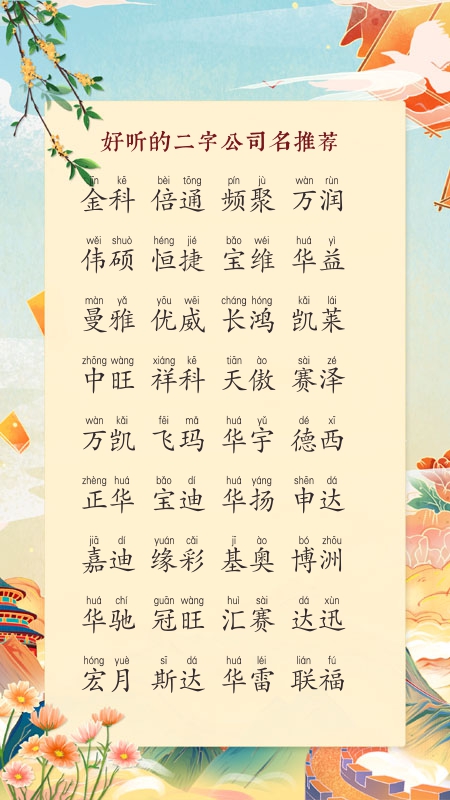 好听的二字公司名推荐
jīn kē bèi tōng pín jù wàn rùn
金科 倍通 频聚 万润
wěi shuò héng jié bǎo wéi huá yì
伟硕 恒捷 宝维 华益
màn yǎ yōu wēi cháng hóng kǎi lái
曼雅 优威 长鸿 凯莱
zhōng wàng xiáng kē tiān ào sài zé
中旺 祥科 天傲 赛泽
wàn kǎi fēi mǎ huá yǔ dé xī
万凯 飞玛 华宇 德西
zhèng huá bǎo dí huá yáng shēn dá
正华 宝迪 华扬 申达
jiā dí yuán cǎi jī ào bó zhōu
嘉迪 缘彩 基奥 博洲
huá chí guān wàng huì sài dá xùn
华驰 冠旺 汇赛 达迅
hóng yuè sī dá huá léi lián fú
宏月 斯达 华雷 联福